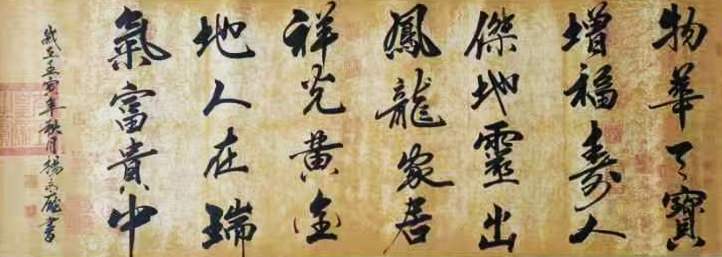 物華天寶
增福壽人
傑地靈出
鳳龍家居
祥光黃金
地人在瑞
氣富貴中
歲在壬寅年秋月楊文書